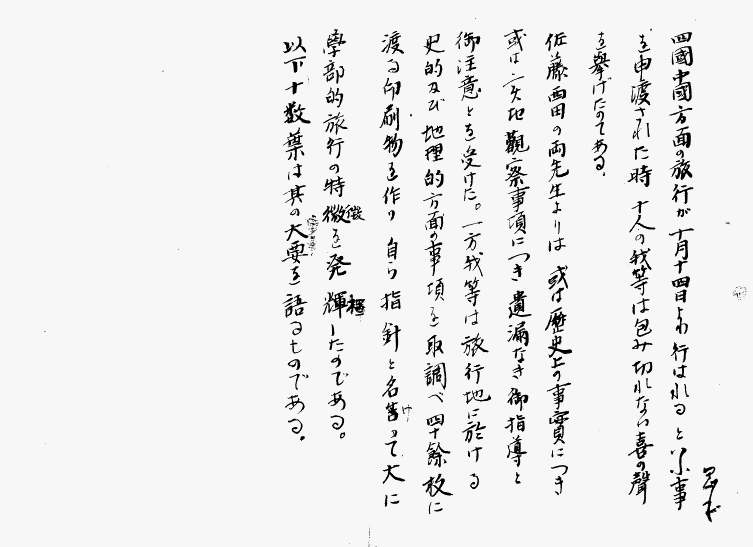 四國中國方面の旅行が十月十四日より行はれると以ふ事
を申渡された時 十人の我等は包み切れない喜の聲
を擧げたのである。
佐藤西田の両先生よりは 或は歴史上の事實につき
或は実地觀察事項につき遺漏なき御指導と
御注意とを受けた。一方我等は旅行地に於ける
史的及び地理的方面の事項を取調べ四十餘枚に
渡る印刷物を作り 自ら指針と名付けって大に
學部的旅行の特徴を発揮したのである。
以下十数葉は其の大要を語るものである。